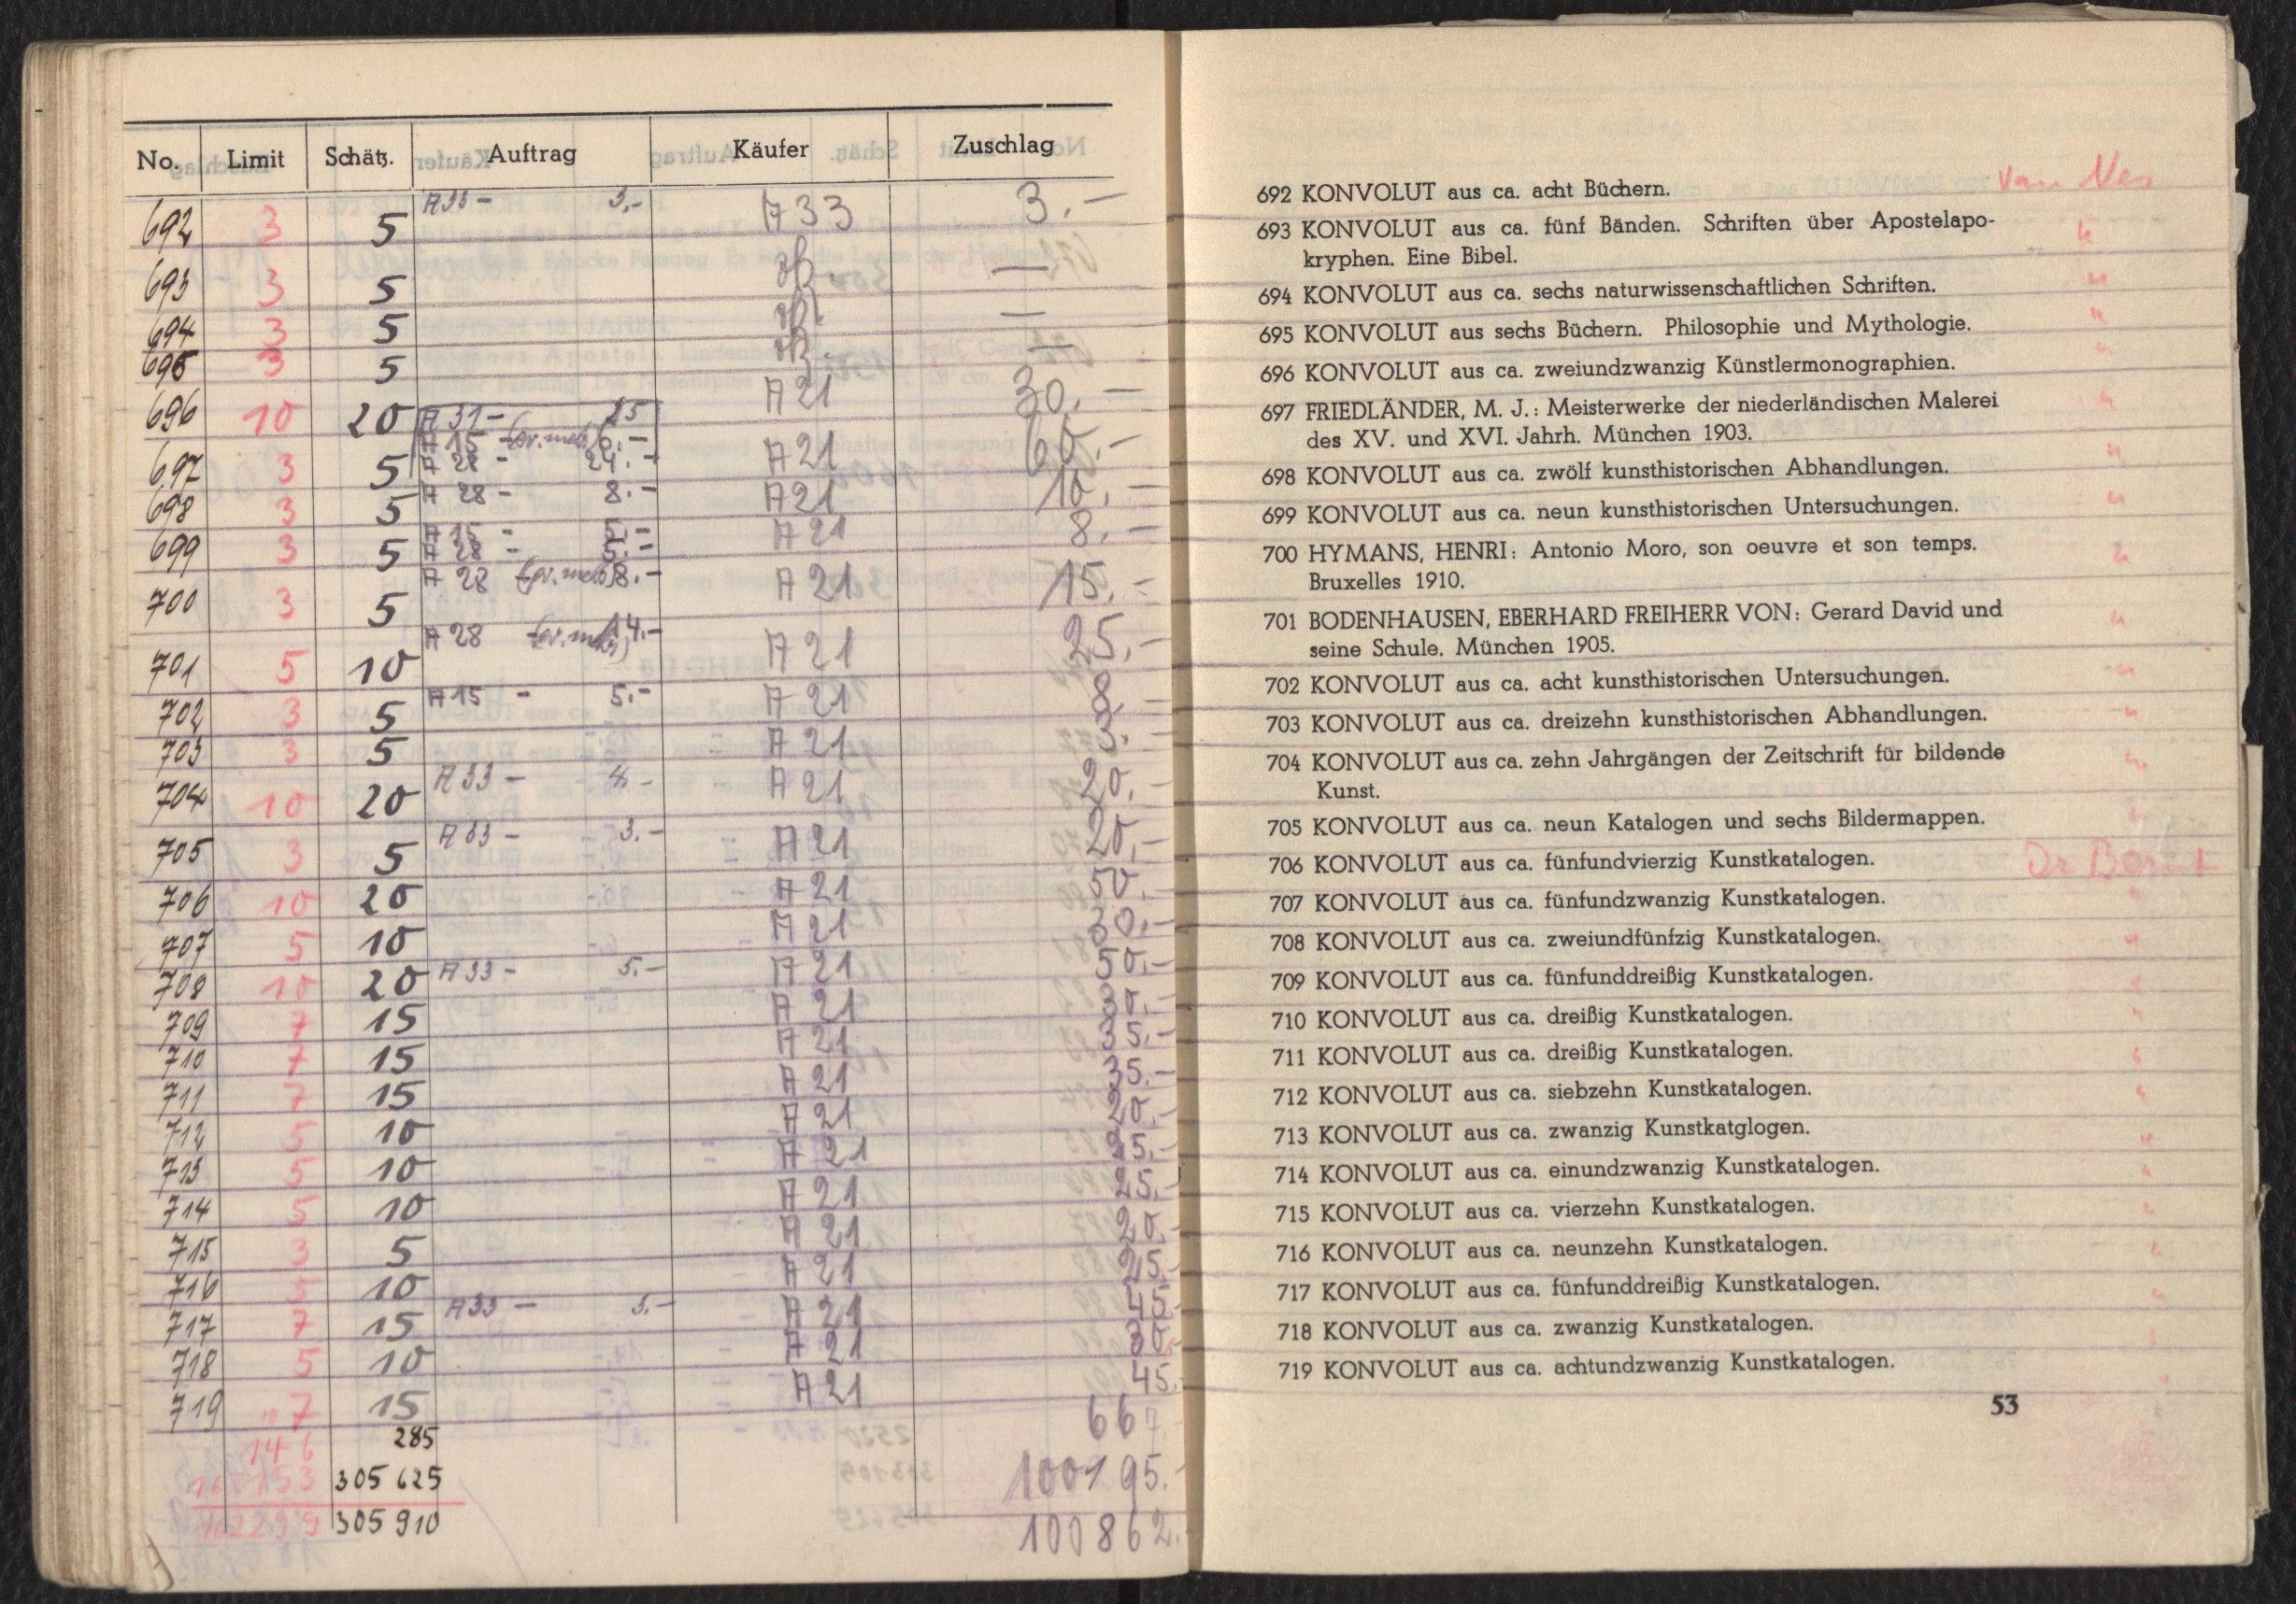 No. Limit Schätz. Auftrag Käufer Zuschlag
692 3 5 A33 - 3.- A33 3.-
693 3 5 —
694 3 5 —
695 3 5 —
696 10 20 A 31 - 15 A21 30.-
A 15 - 6.-
697 3 5 A 28 - 24.- A21 60.-
698 3 5 A 28 - 8.- A21 10.-
A 15 - 5.-
699 3 5 A 28 - 5.- A21 8.-
700 3 5 A 28 8.- A21 15.-
701 5 10 A 28 14.- A21 25.-
702 3 5 A15 - 5.- A21 8.-
703 3 5 A21 3.
704 10 20 A33 - 4.- A21 20.-
705 3 5 A33 - 3.- A21 20.-
706 10 20 A21 50.-
707 5 10 A21 30.-
708 10 20 A33 - 5.- A21 50.-
709 7 15 A21 30.-
710 7 15 A21 35.-
711 7 15 A21 35.-
712 5 10 A21 20.-
713 5 10 A21 25.-
714 5 10 A21 25.-
715 3 5 A21 20.-
716 5 10 A21 25.-
717 7 15 A33 - 3.- A21 45.-
718 5 10 A21 30.-
719 7 15 A21 45.
146 285 667
305 625 100195.-
305 910 100862.
692 KONVOLUT aus ca. acht Büchern. Van Nes
693 KONVOLUT aus ca. fünf Bänden. Schriften über Apostelapo-
kryphen. Eine Bibel. "
694 KONVOLUT aus ca. sechs naturwissenschaftlichen Schriften. "
695 KONVOLUT aus sechs Büchern. Philosophie und Mythologie. "
696 KONVOLUT aus ca. zweiundzwanzig Künstlermonographien. "
697 FRIEDLÄNDER, M. J.: Meisterwerke der niederländischen Malerei "
des XV. und XVI. Jahrh. München 1903.
698 KONVOLUT aus ca. zwölf kunsthistorischen Abhandlungen. "
699 KONVOLUT aus ca. neun kunsthistorischen Untersuchungen. "
700 HYMANS, HENRI: Antonio Moro, son oeuvre et son temps. "
Bruxelles 1910.
701 BODENHAUSEN, EBERHARD FREIHERR VON: Gerard David und "
seine Schule. München 1905.
702 KONVOLUT aus ca. acht kunsthistorischen Untersuchungen. "
703 KONVOLUT aus ca. dreizehn kunsthistorischen Abhandlungen. "
704 KONVOLUT aus ca. zehn Jahrgängen der Zeitschrift für bildende "
Kunst.
705 KONVOLUT aus ca. neun Katalogen und sechs Bildermappen. "
706 KONVOLUT aus ca. fünfundvierzig Kunstkatalogen. Dr
707 KONVOLUT aus ca. fünfundzwanzig Kunstkatalogen. "
708 KONVOLUT aus ca. zweiundfünfzig Kunstkatalogen. "
709 KONVOLUT aus ca. fünfunddreißig Kunstkatalogen. "
710 KONVOLUT aus ca. dreißig Kunstkatalogen. "
711 KONVOLUT aus ca. dreißig Kunstkatalogen. "
712 KONVOLUT aus ca. siebzehn Kunstkatalogen. "
713 KONVOLUT aus ca. zwanzig Kunstkatglogen. "
714 KONVOLUT aus ca. einundzwanzig Kunstkatalogen. "
715 KONVOLUT aus ca. vierzehn Kunstkatalogen. "
716 KONVOLUT aus ca. neunzehn Kunstkatalogen. "
717 KONVOLUT aus ca. fünfunddreißig Kunstkatalogen. "
718 KONVOLUT aus ca. zwanzig Kunstkatalogen. "
719 KONVOLUT aus ca. achtundzwanzig Kunstkatalogen. "
53